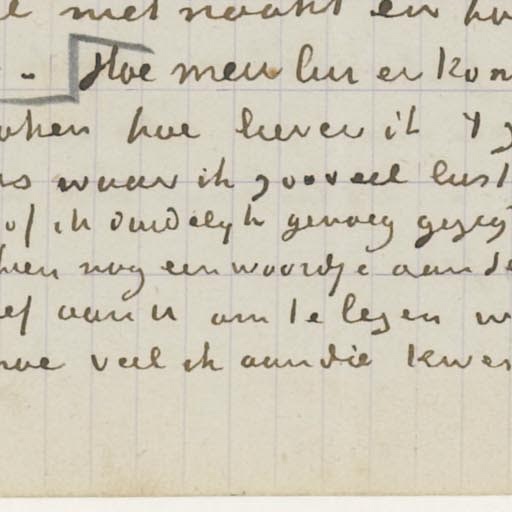 met naakt en
Hoe meer lui er
hoe liever ik 't
waar ik zooveel lust
of ik duidelyk genoeg gezegd
nog een woordje aan
aan u om te lezen
hoe veel ik aan die kwes